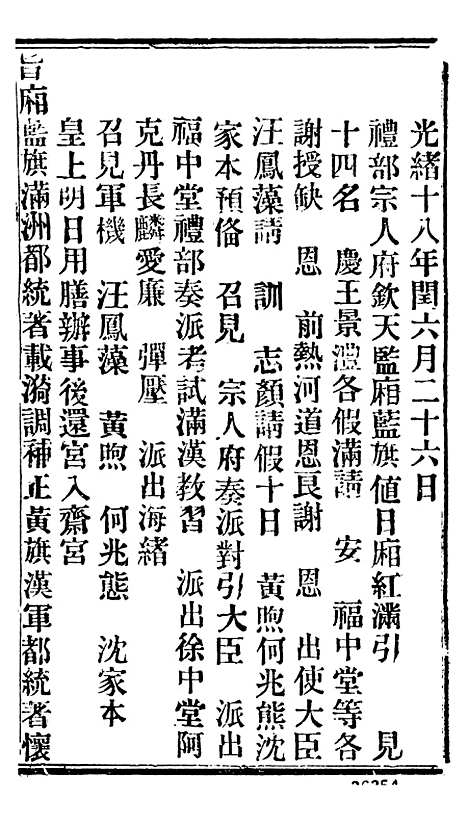 光緒十八年閏六月二十六日
禮部宗人府欽天監廂藍旗值日廂紅滿引 見
十四名 慶王景灃各假滿請 安 福中堂等各
謝授缺 恩 前熱河道恩良謝 恩 出使大臣
汪鳳藻請 訓 志顏請假十日 黃煦何兆熊沈
家本預備 召見 宗人府奏派對引大臣 派出
福中堂禮部奏派考試滿漢教習 派出徐中堂阿
克丹長麟愛廉 彈壓 派出海緒
召見軍機 汪鳳藻 黃煦 何兆態 沈家本
皇上明日用膳辦事後還宮入齋宮
旨廂藍旗滿洲都統著載漪調補正黃旗漢軍都統著懷